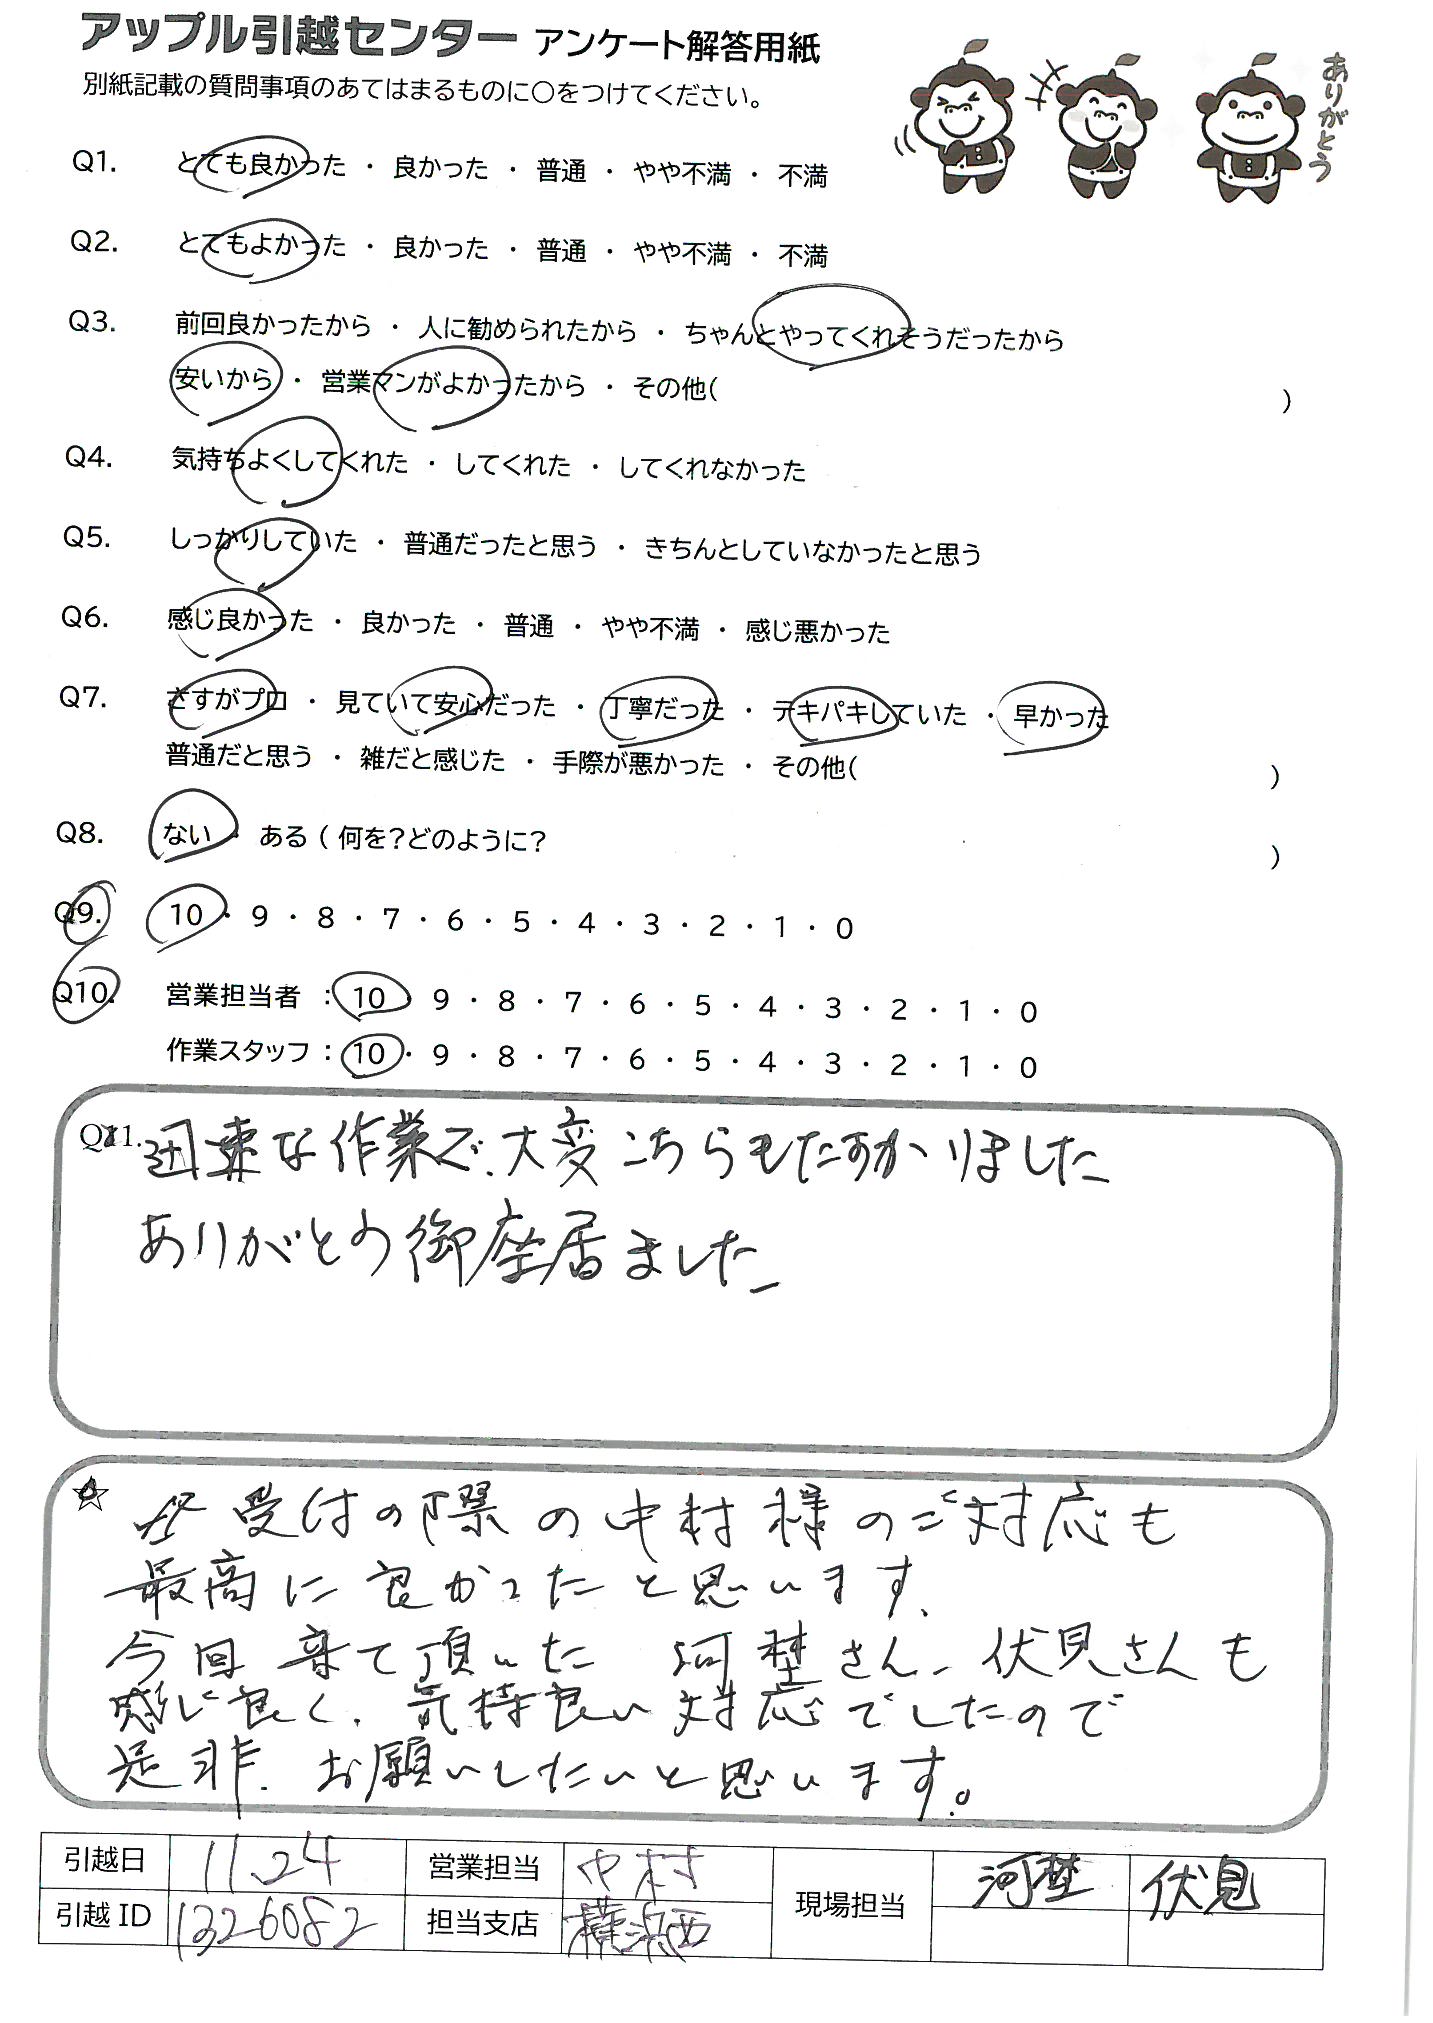 アップル引越センター アンケート解答用紙
別紙記載の質問事項のあてはまるものに○をつけてください。
ありがとう
Q1. とても良かった ・ 良かった ・ 普通 ・ やや不満 ・ 不満
Q2. とてもよかった ・ 良かった ・ 普通 ・ やや不満 ・ 不満
Q3. 前回良かったから ・ 人に勧められたから ・ ちゃんとやってくれそうだったから
安いから ・ 営業マンがよかったから ・ その他( )
Q4. 気持ちよくしてくれた ・ してくれた ・ してくれなかった
Q5. しっかりしていた ・ 普通だったと思う ・ きちんとしていなかったと思う
Q6. 感じ良かった ・ 良かった ・ 普通 ・ やや不満 ・ 感じ悪かった
Q7. さすがプロ ・ 見ていて安心だった ・ 丁寧だった ・ テキパキしていた ・ 早かった
普通だと思う ・ 雑だと感じた ・ 手際が悪かった ・ その他( )
Q8. ない ・ ある ( 何を?どのように? )
Q9. 10 ・ 9 ・ 8 ・ 7 ・ 6 ・ 5 ・ 4 ・ 3 ・ 2 ・ 1 ・ 0
Q10. 営業担当者 : 10 ・ 9 ・ 8 ・ 7 ・ 6 ・ 5 ・ 4 ・ 3 ・ 2 ・ 1 ・ 0
作業スタッフ : 10 ・ 9 ・ 8 ・ 7 ・ 6 ・ 5 ・ 4 ・ 3 ・ 2 ・ 1 ・ 0
Q11. 迅速な作業で、大変こちらもたすかりました
ありがとう御座居ました
☆ 受付の際の中村様のご対応も
最高に良かったと思います、
今回来て頂いた 河埜さん、伏見さんも
感じ良く、気持良い対応でしたので
是非、お願いしたいと思います。
引越日 11.24 営業担当 中村 現場担当 河埜 伏見
引越 ID 1326082 担当支店 横浜西